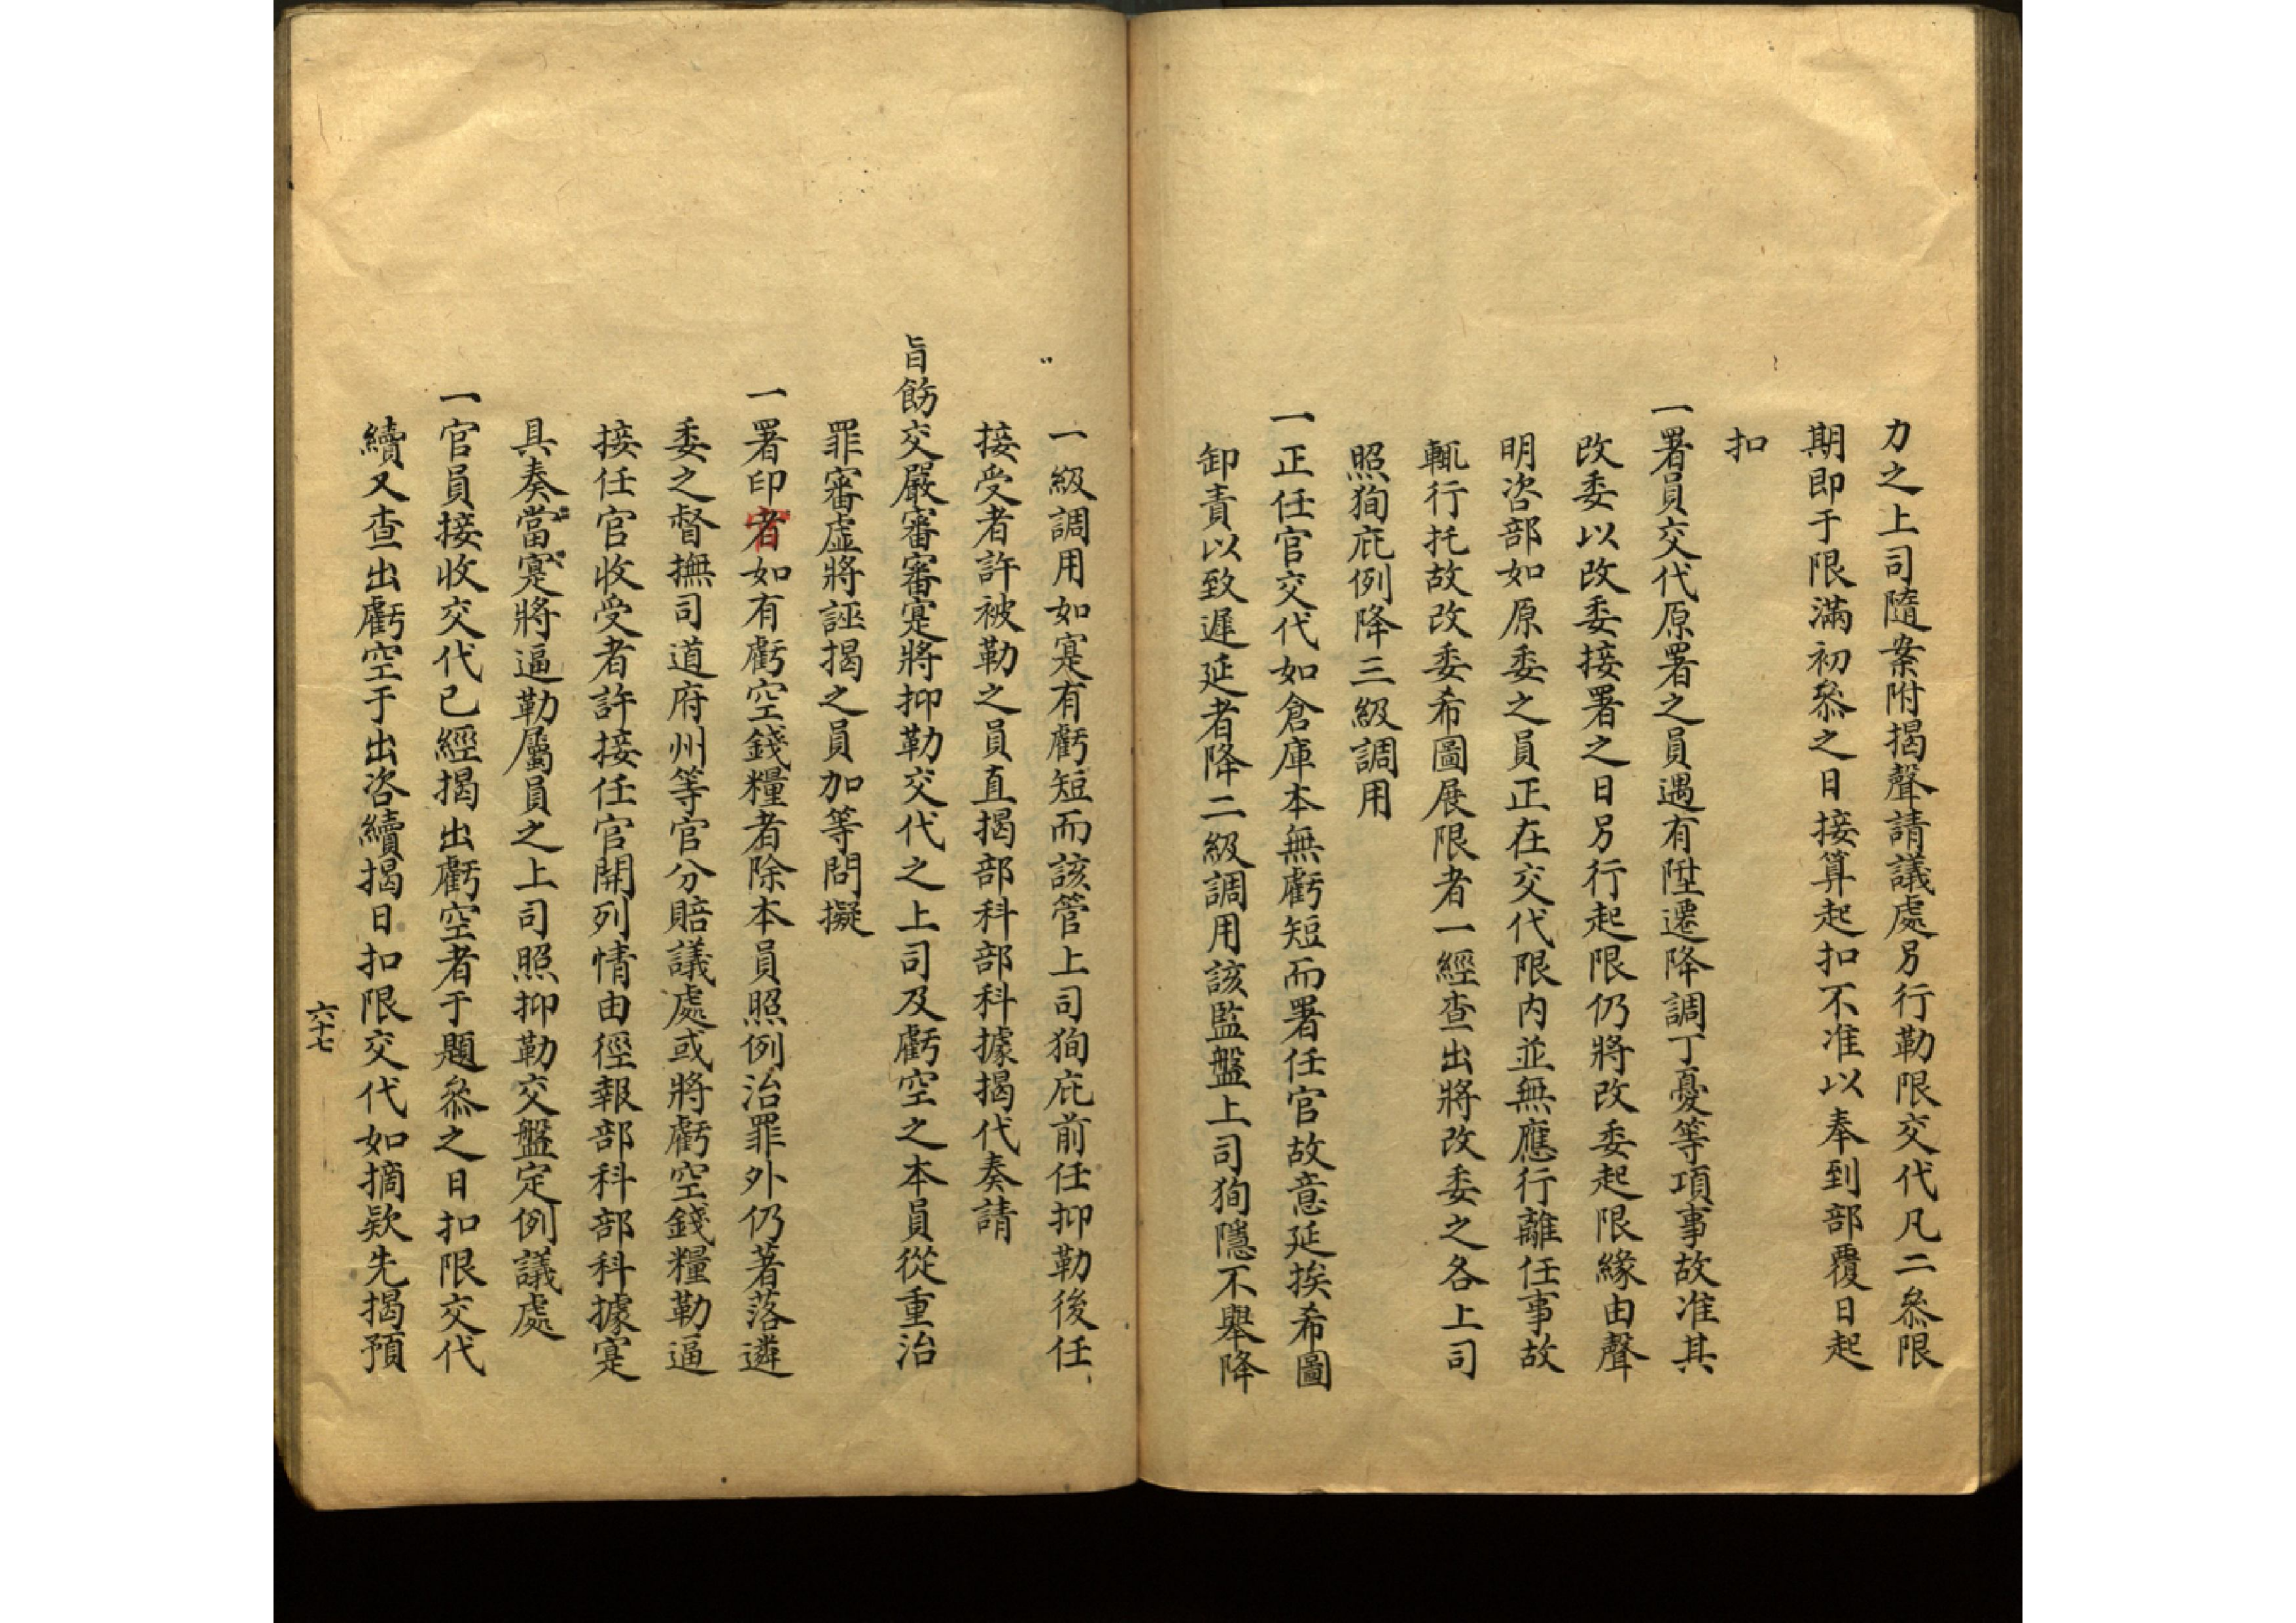 力之上司隨案附揭聲請議處另行勒限交代凡二叅限
期即于限滿初叅之日接算起扣不准以奉到部覆日起
扣
一署員交代原署之員遇有陞遷降調丁憂等項事故准其
改委以改委接署之日另行起限仍將改委起限緣由聲
明咨部如原委之員正在交代限內並無應行離任事故
輒行托故改委希圖展限者一經查出將改委之各上司
照狥庇例降三級調用
一正任官交代如倉庫本無虧短而署任官故意延挨希圖
卸責以致遲延者降二級調用該監盤上司狥隱不舉降
一級調用如寔有虧短而該管上司狥庇前任抑勒後任
接受者許被勒之員直揭部科部科據揭代奏請
旨飭交嚴審審寔將抑勒交代之上司及虧空之本員從重治
罪審虛將誣揭之員加等問擬
一署印者如有虧空錢糧者除本員照例治罪外仍著落遴
委之督撫司道府州等官分賠議處或將虧空錢糧勒逼
接任官收受者許接任官開列情由徑報部科部科據寔
具奏當寔將逼勒屬員之上司照抑勒交盤定例議處
一官員接收交代已經揭出虧空者于題叅之日扣限交代
續又查出虧空于出咨續揭日扣限交代如摘欵先揭預
六十七